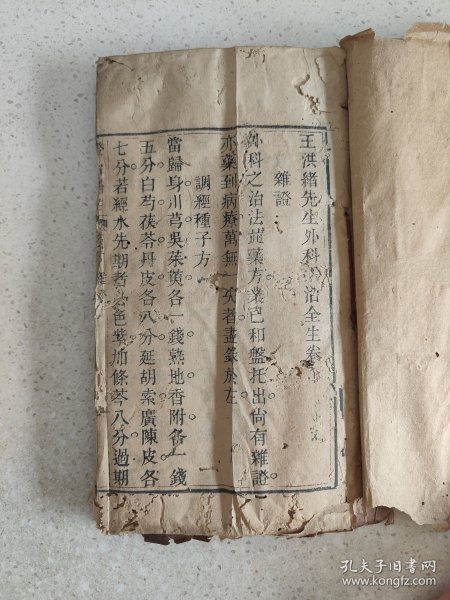 王洪緒先生外科治全生
雜證
外科之治法藥方業已和盤托出尚有雜證
亦藥到病瘳萬無一失者盡錄於左
調經種子方
當歸身川芎吳茱萸各一錢熟地香附各一錢
五分白芍茯苓丹皮各八分延胡索廣陳皮各
七分若經水先期者色紫加條芩八分過期
孔夫子旧书网
www.kongfz.com